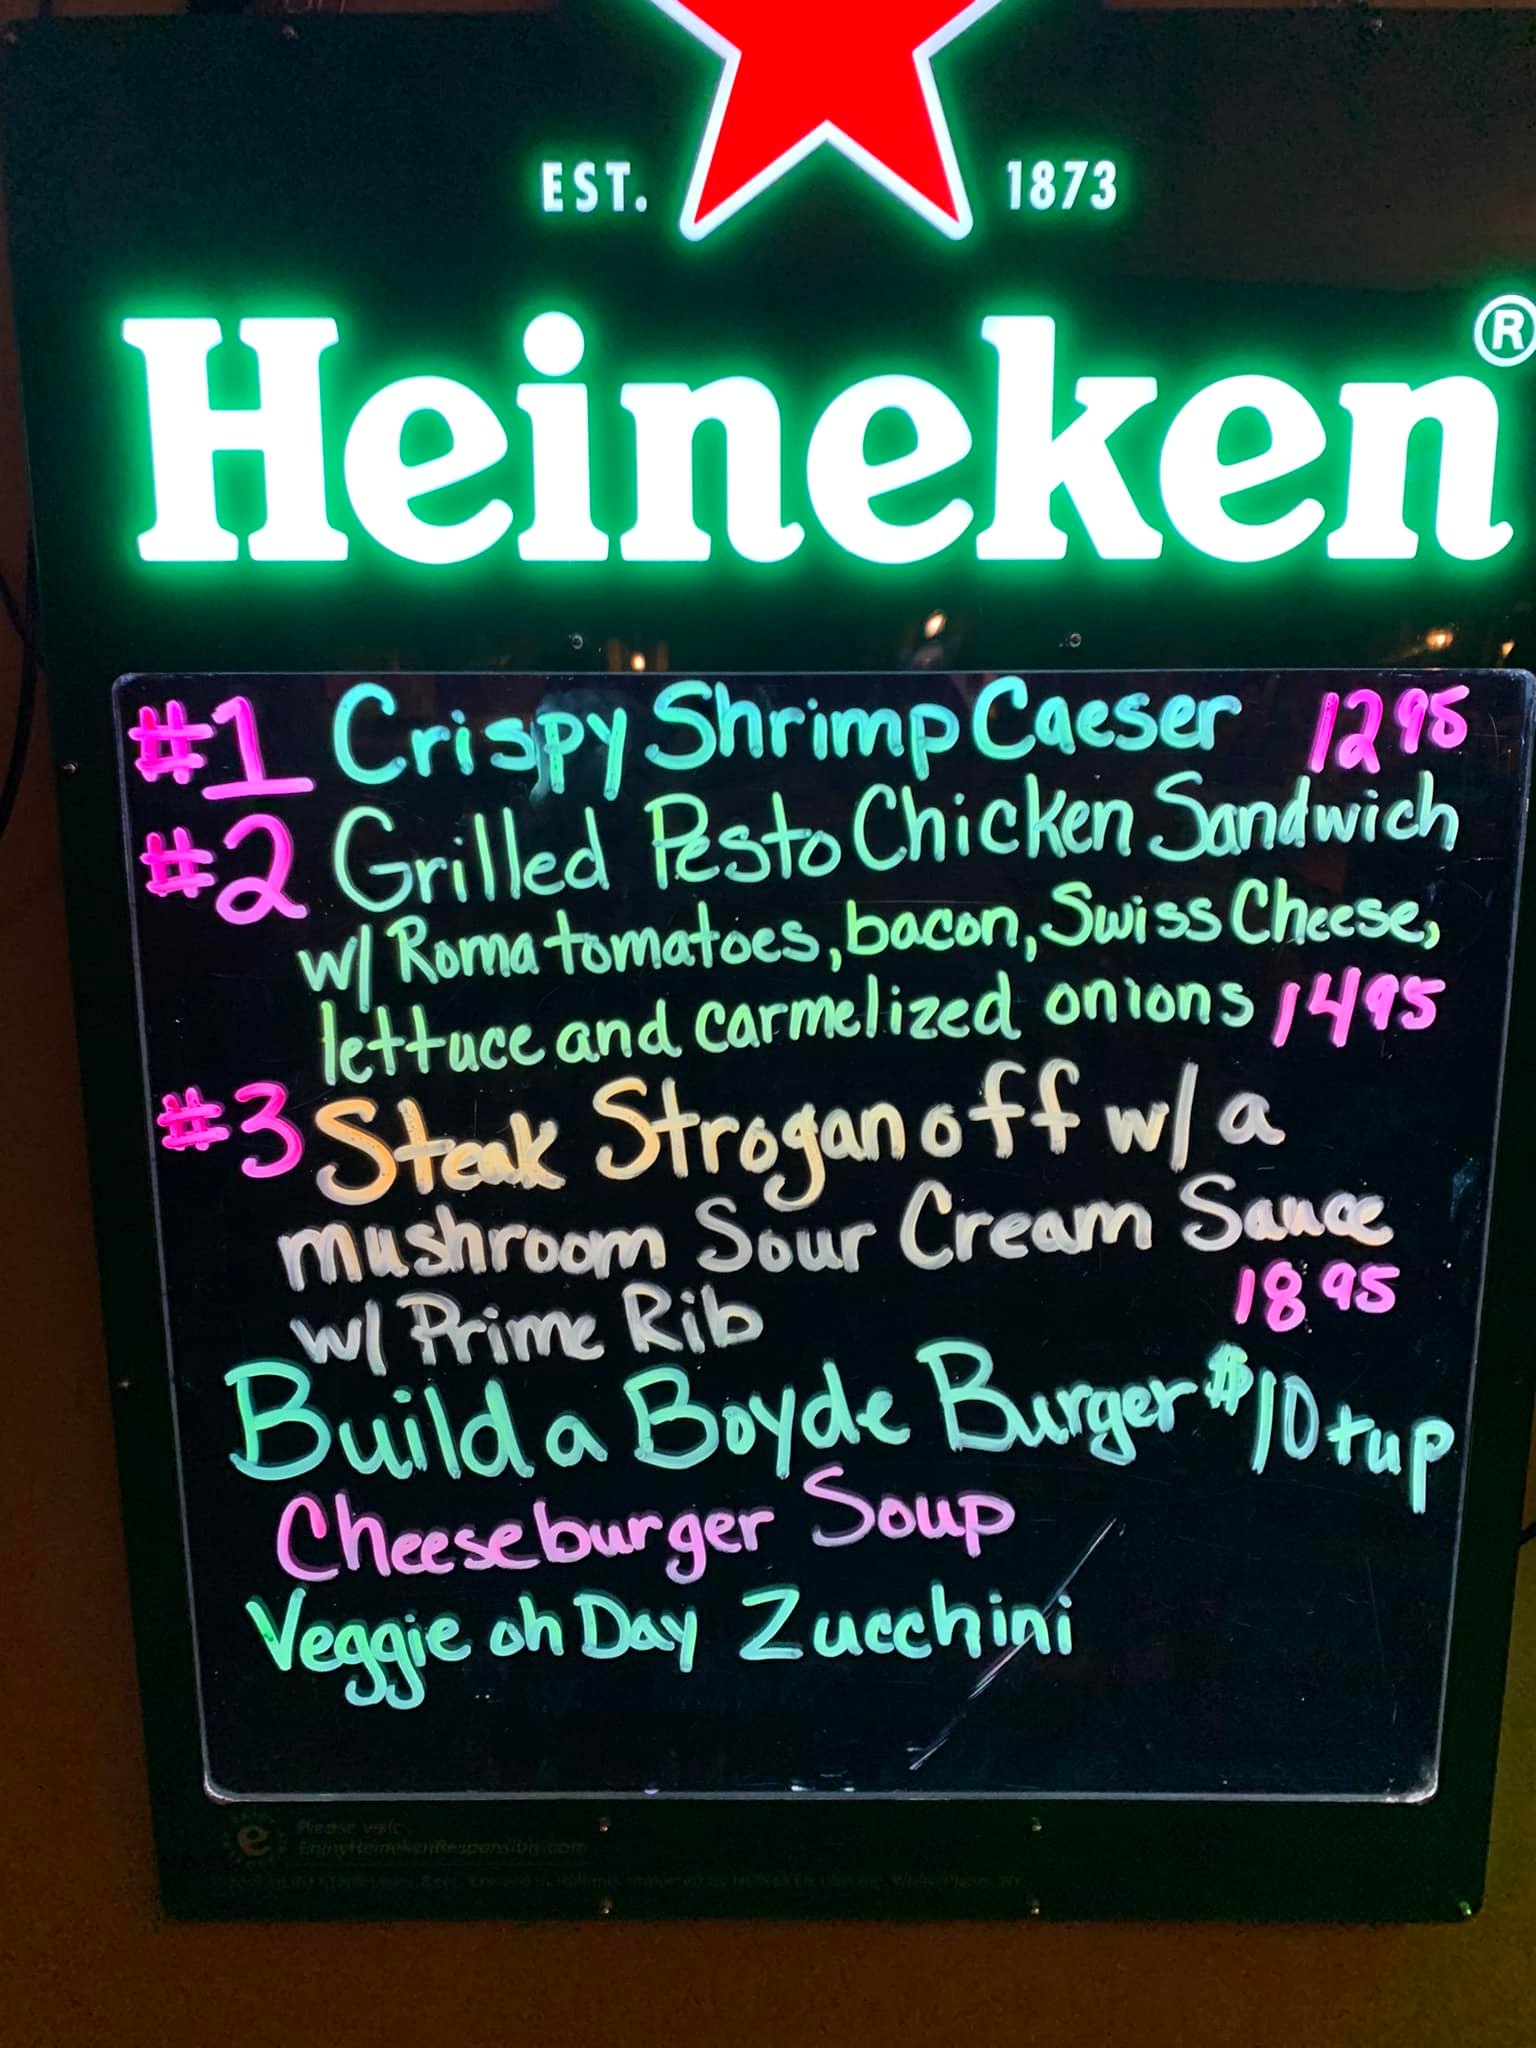 EST. 1873
Heineken®
#1 Crispy Shrimp Caeser 1295
#2 Grilled Pesto Chicken Sandwich
w/ Roma tomatoes, bacon, Swiss Cheese,
lettuce and carmelized onions 1495
#3 Steak Stroganoff w/ a
mushroom Sour Cream Sauce
w/ Prime Rib 1895
Build a Boyde Burger $10 + up
Cheeseburger Soup
Veggie oh Day Zucchini
Please visit
EnjoyHeinekenResponsibly.com